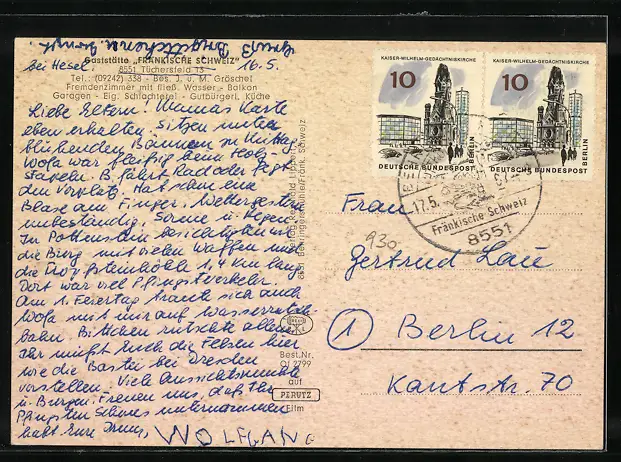 Gaststätte „FRÄNKISCHE SCHWEIZ"
8551 Tüchersfeld 13
Tel.: (09242) 338 - Bes. J. u. M. Gröschel
Fremdenzimmer mit fließ. Wasser - Balkon
Garagen - Eig. Schlachterei - Gutbürgerl. Küche
bei Hesel. 16.5.
Liebe Eltern! Mamas Karte
eben erhalten. Sitzen unter
blühenden Bäumen
Wolfg war fleißig beim Holz-
Stapeln. B. fährt Rad oder fegt
den Vorplatz. Hat schon eine
Blase am Finger. Wetter gestern
unbeständig, Sonne u. Regen.
In Pottenstein besichtigten wir
die Burg mit vielen Waffen und
die 1,4 km lang
Dort war viel Pfingstverkehr.
Am 1. Feiertag traute sich auch
Wolfg mit mir auf Wasserrutsch-
bahn. rutschte allein.
Ihr müßt Euch die Felsen hier
wie die Bastei bei Dresden
vorstellen - Viele Aussichtspunkte
u. Burgen. Freuen uns, daß Ihr
Pfingsten Schönes unternommen
habt Eure
WOLFGANG
Best.Nr.
Of 2799
auf
PERUTZ
Film
KAISER-WILHELM-GEDÄCHTNISKIRCHE
10
DEUTSCHE BUNDESPOST BERLIN
KAISER-WILHELM-GEDÄCHTNISKIRCHE
10
DEUTSCHE BUNDESPOST BERLIN
17.5.
Fränkische Schweiz
8551
930
Frau
Gertrud Lau
1 Berlin 12
Kantstr. 70